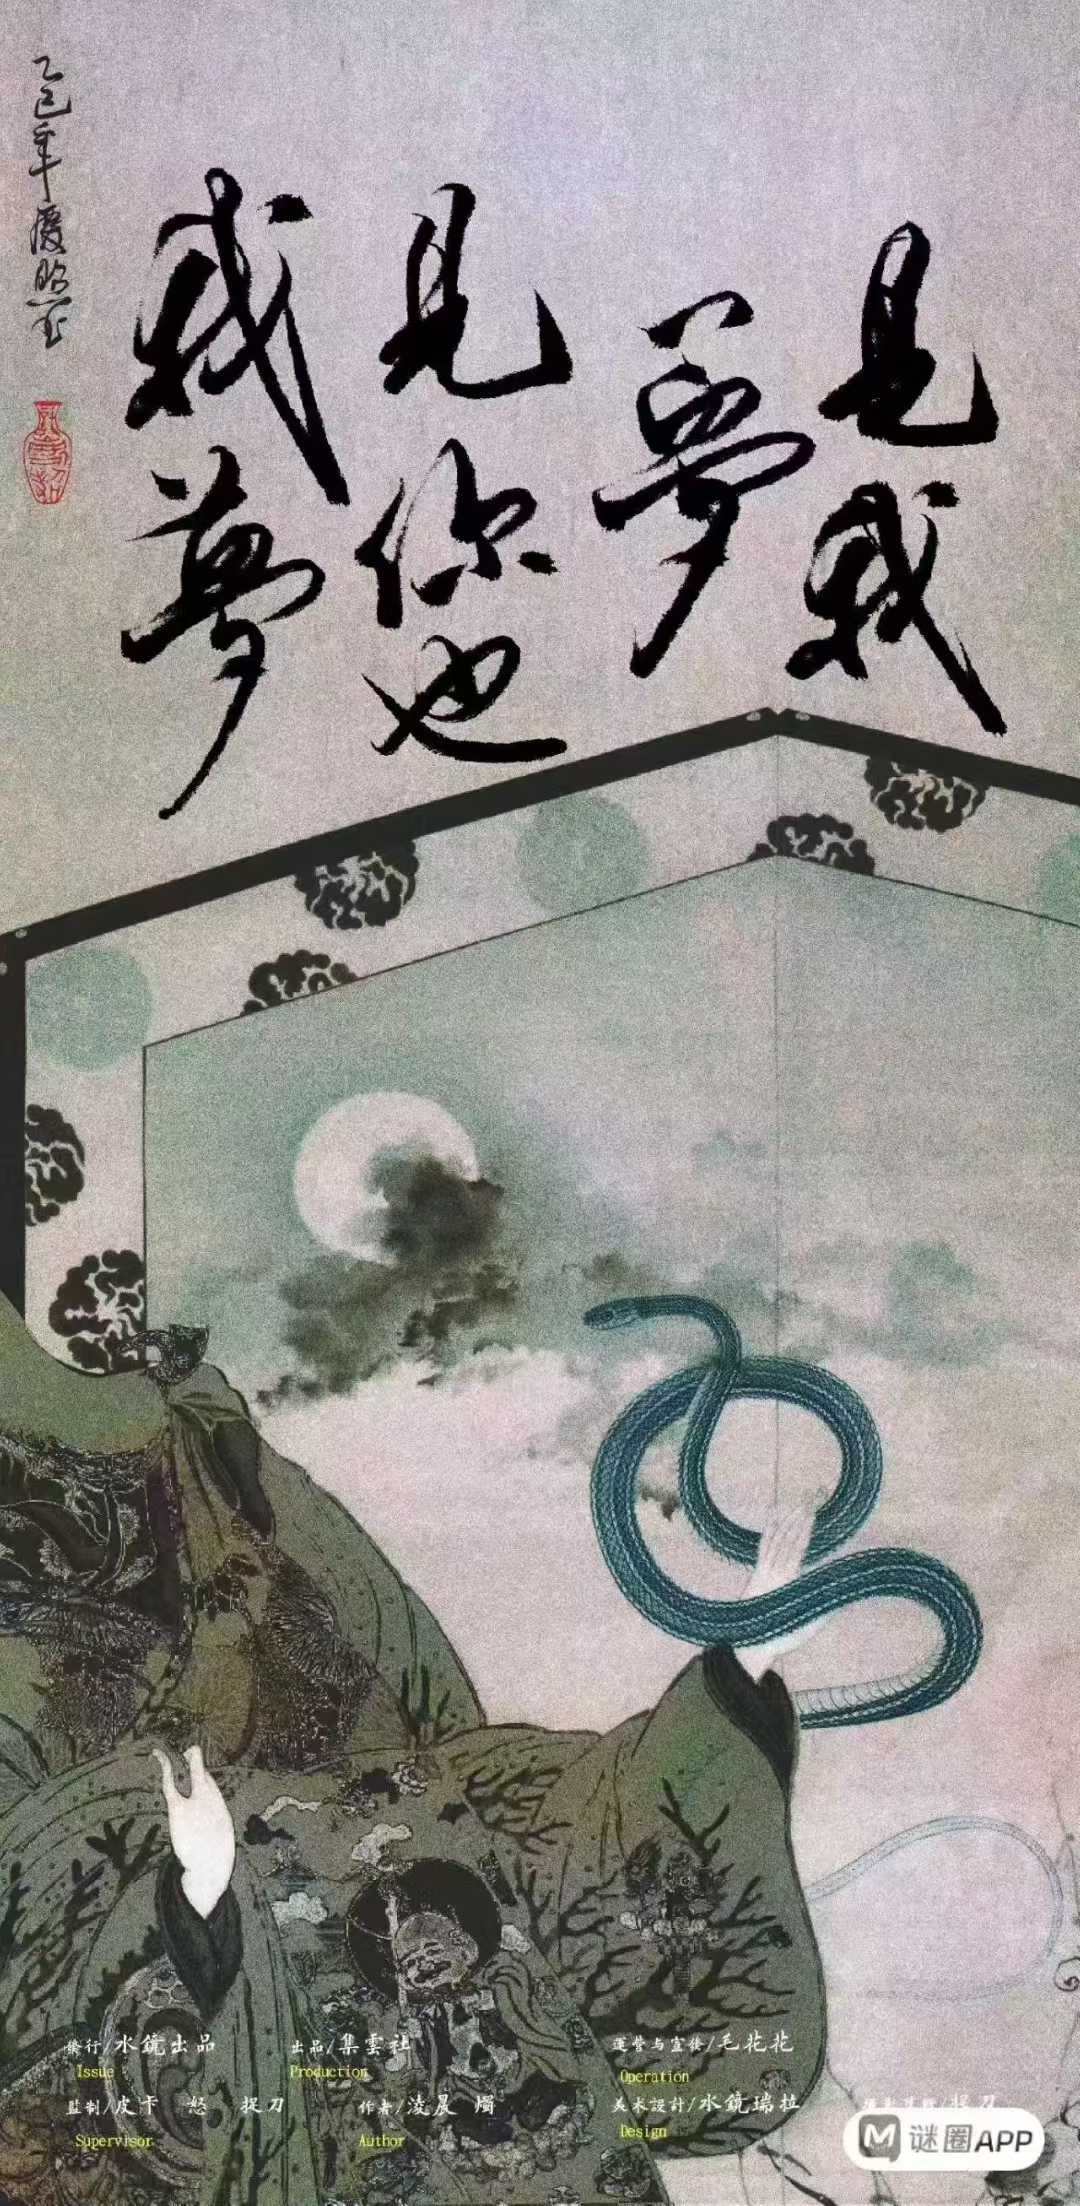 乙巳年
我夢
見你也
夢
見我
發行/水鏡出品
Issue
出品/集雲社
Production
運營与宣發/毛花花
Operation
監制/皮卡 怒 捉刀
Supervisor
作者/淩晨 燭
Author
美术設計/水鏡瑞拉
Design
捉刀
谜圈APP